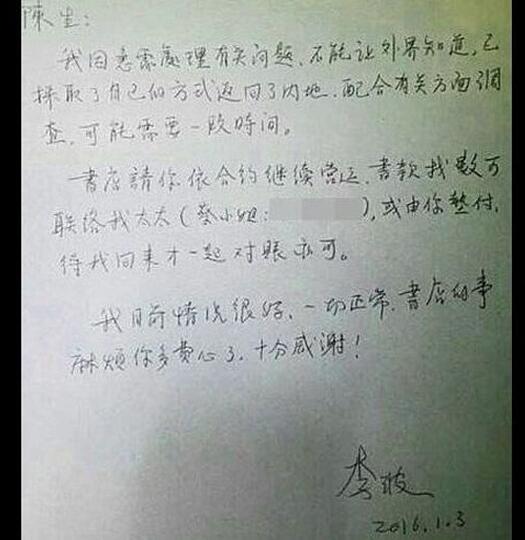 陳生：
我因急需處理有关问题，不能让外界知道，已
採取了自己的方式返回了内地，配合有关方面調
查，可能需要一段時间。
書店請你依合約继续営运，書款找數可
联络我太太（蔡小姐：），或由你墊付，
待我回来才一起对賬亦可。
我目前情况很好，一切正常，書店的事
麻煩你多費心了，十分感謝！
李波
2016.1.3